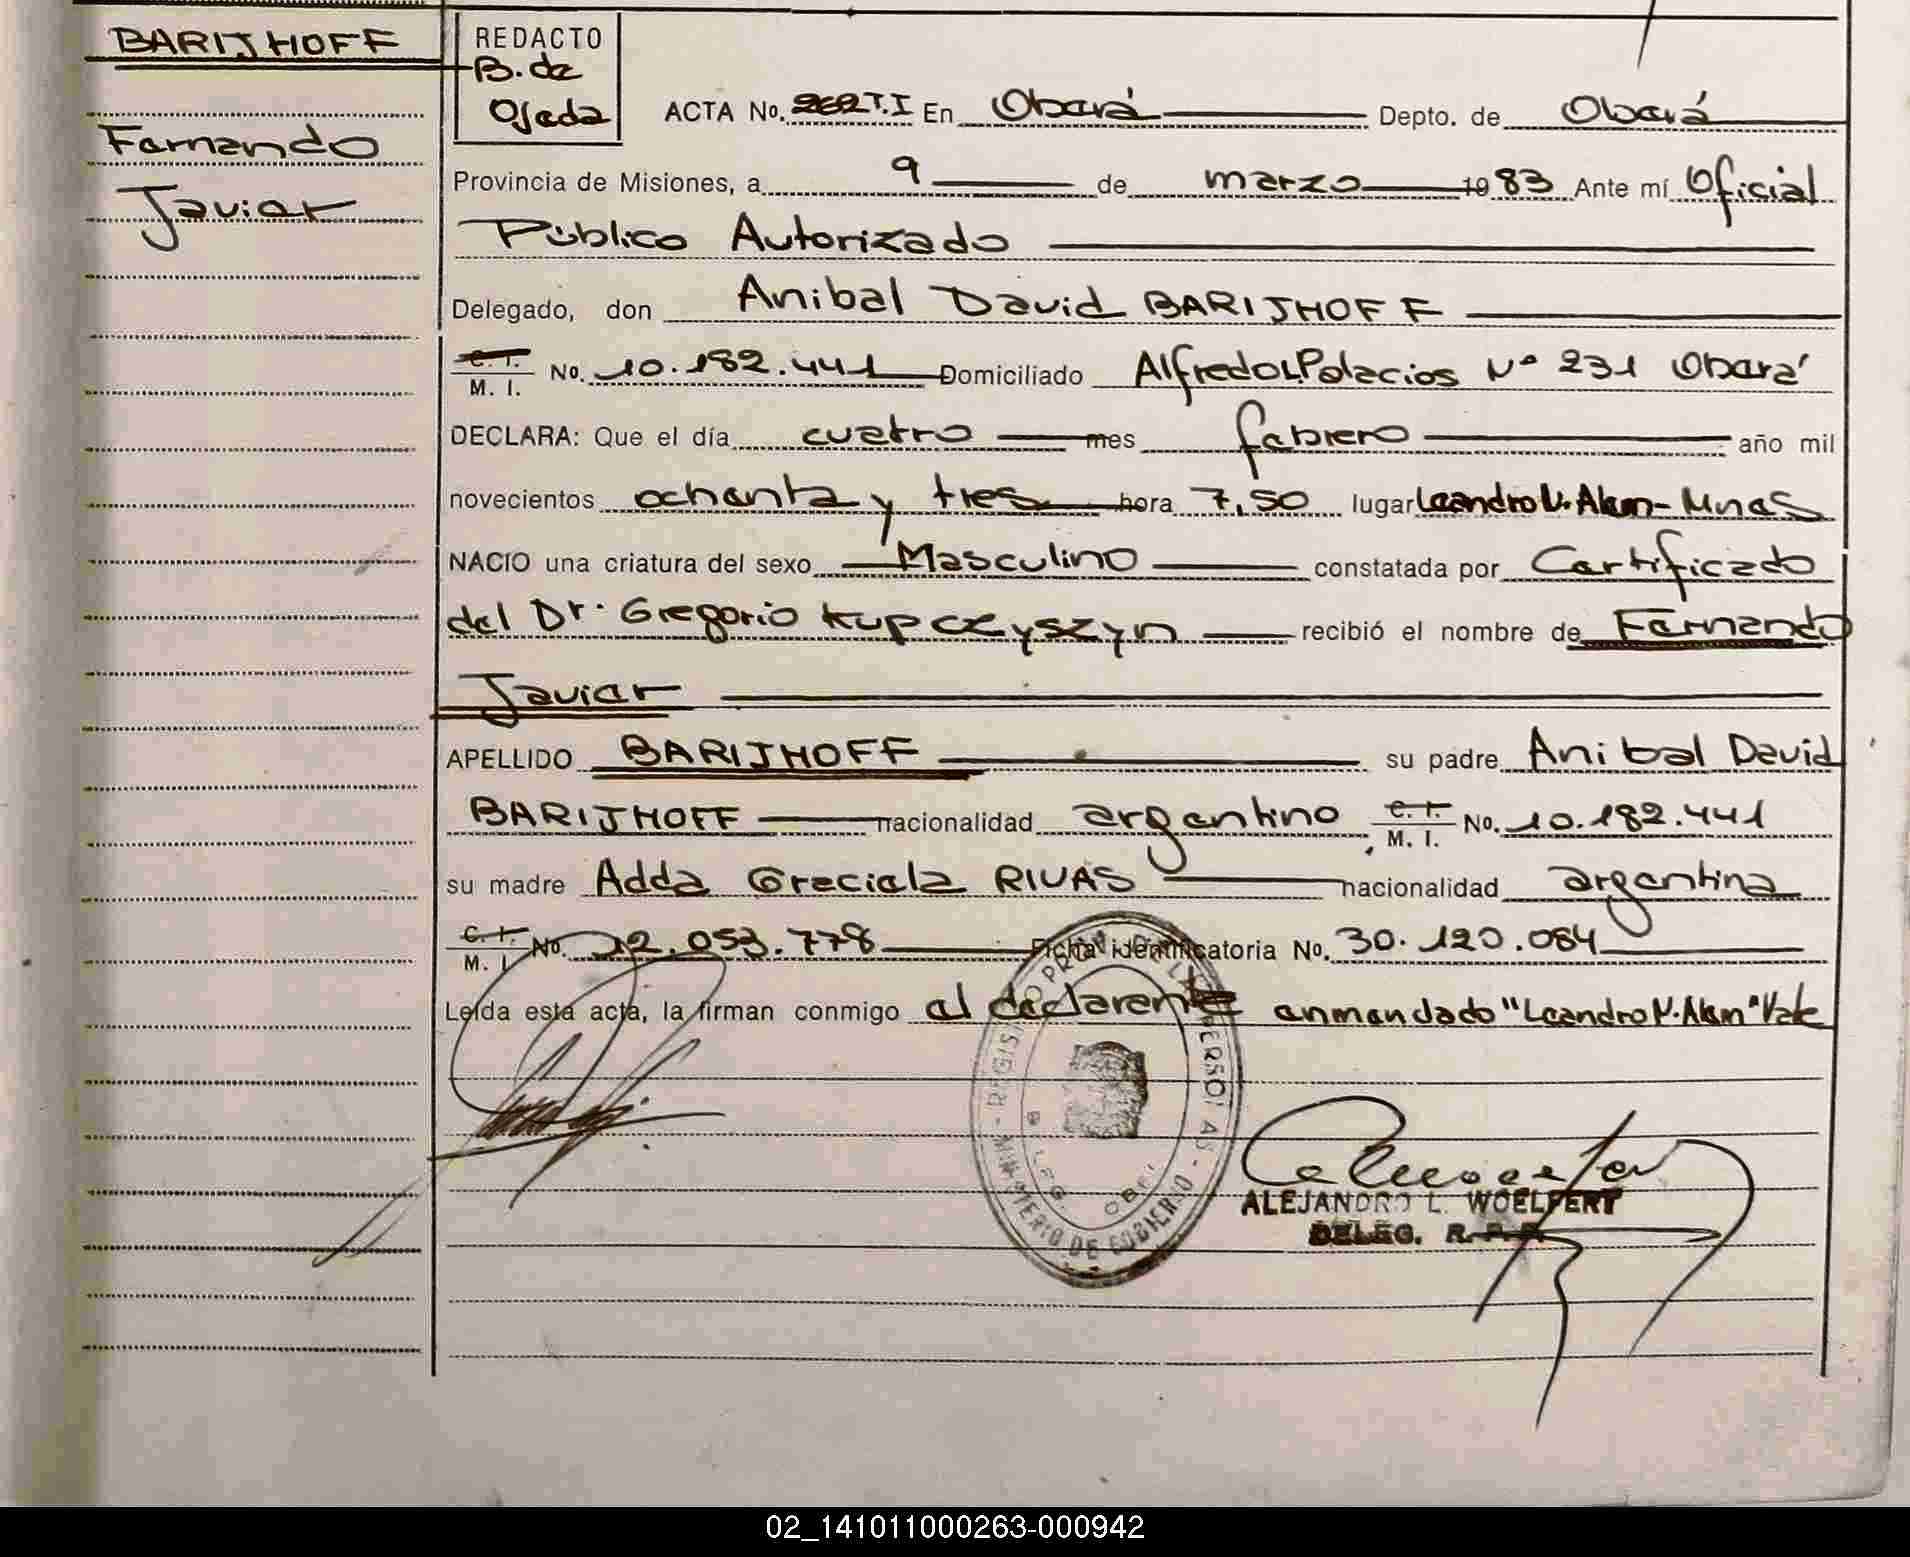 BARIJHOFF
Fernando
Javier
REDACTO
B. de
Ojeda
ACTA No. 262 T.I En Oberá Depto. de Oberá
Provincia de Misiones, a 9 de marzo 1983 Ante mí Oficial
Público Autorizado
Delegado, don Anibal David BARIJHOFF
C. I. M. I. No. 10.182.441 Domiciliado Alfredo L. Palacios Nº 231 Oberá
DECLARA: Que el día cuatro mes febrero año mil
novecientos ochenta y tres hora 7,50 lugar Leandro N. Alem - Mnes
NACIO una criatura del sexo Masculino constatada por Certificado
del Dr. Gregorio Kupczyszyn recibió el nombre de Fernando
Javier
APELLIDO BARIJHOFF su padre Anibal David
BARIJHOFF nacionalidad argentino C. I. M. I. No. 10.182.441
su madre Adda Graciela RIVAS nacionalidad argentina
C. I. M. I. No. 12.053.778 Ficha identificatoria No. 30.120.084
Leída esta acta, la firman conmigo el declarente enmendado "Leandro N. Alem" Vale
MINISTERIO DE GOBIERNO - REGISTRO PROV.
ALEJANDRO L. WOELFERT
DELEG. R.P.P.
02_141011000263-000942